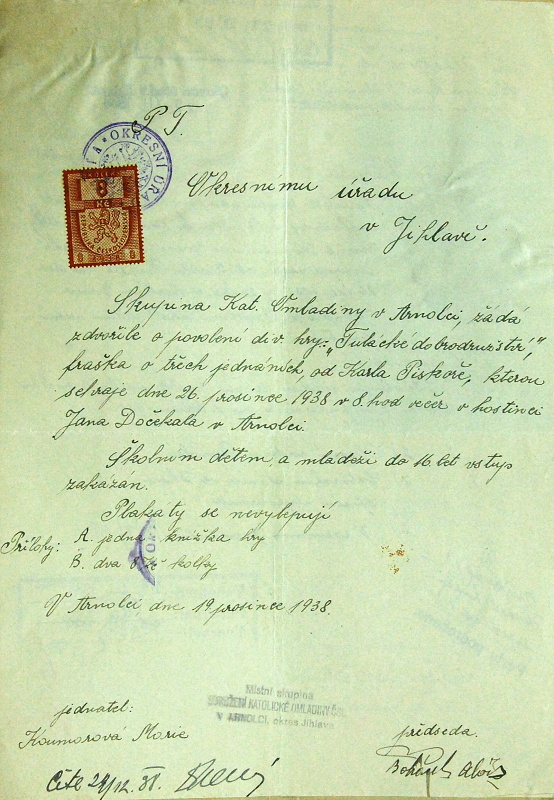 P. T.
OKRESNÍ ÚŘA
KOLEK
8
Kč
8 8
Okresnímu úřadu
v Jihlavě.
Skupina Kat. Omladiny v Arnolci, žádá
zdvořile o povolení div. hry: "Tulácké dobrodružství",
fraška o třech jednáních, od Karla Piskoře, kterou
sehraje dne 26. prosince 1938 v 8. hod večer v hostinci
Jana Dočekala v Arnolci.
Školním dětem a mládeži do 16 let vstup
zakázán.
Plakáty se nevylepují
Přílohy: A. jedna knížka hry
B. dva kolky
V Arnolci, dne 19 prosince 1938.
Místní skupina
SDRUŽENÍ KATOLICKÉ OMLADINY ČSL.
V ARNOLCI, okres Jihlava
jednatel:
Koumarova Marie
předseda.
Alois
Čte 24/12. 38.